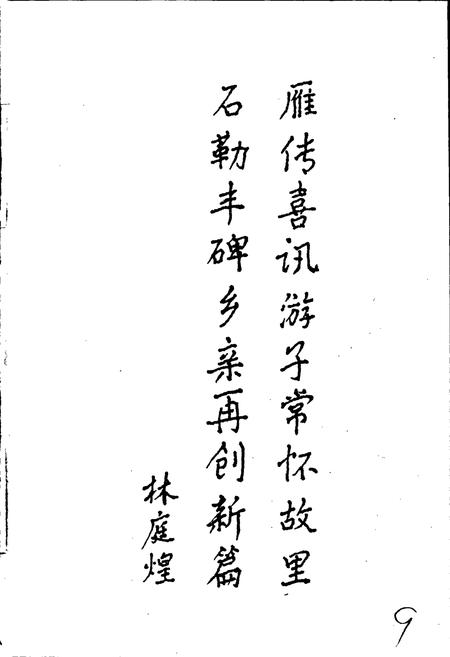 雁传喜讯游子常怀故里
石勒丰碑乡亲再创新篇
林庭煌
9